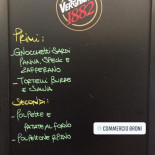 VERGNANO
1882
PRIMI:
-GNOCCHETTI SARDI
PANNA, SPECK E
ZAFFERANO
-TORTELLI BURRO
E SALVIA
SECONDI:
-POLPETTE E
PATATE AL FORNO
-POLPETTONE RIPIENO
COMMERCIO BRONI